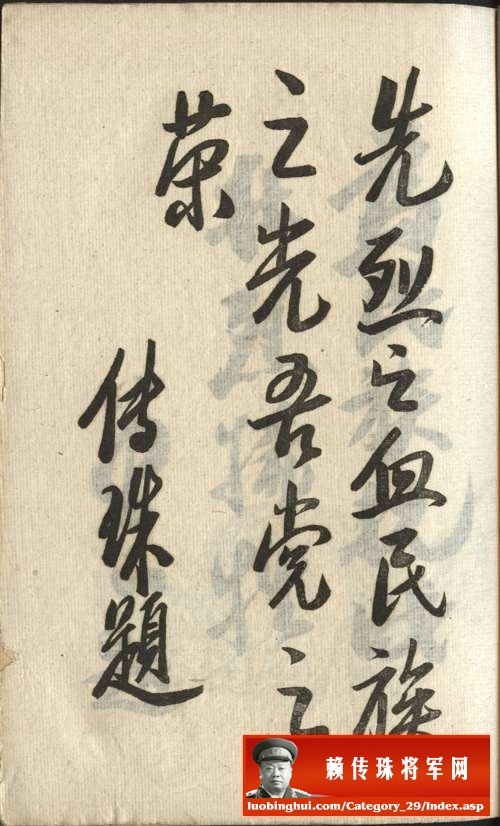 先烈之血民族
之光吾党之
荣
传珠题
赖传珠将军网
luobinghui.com/Category_29/Index.asp